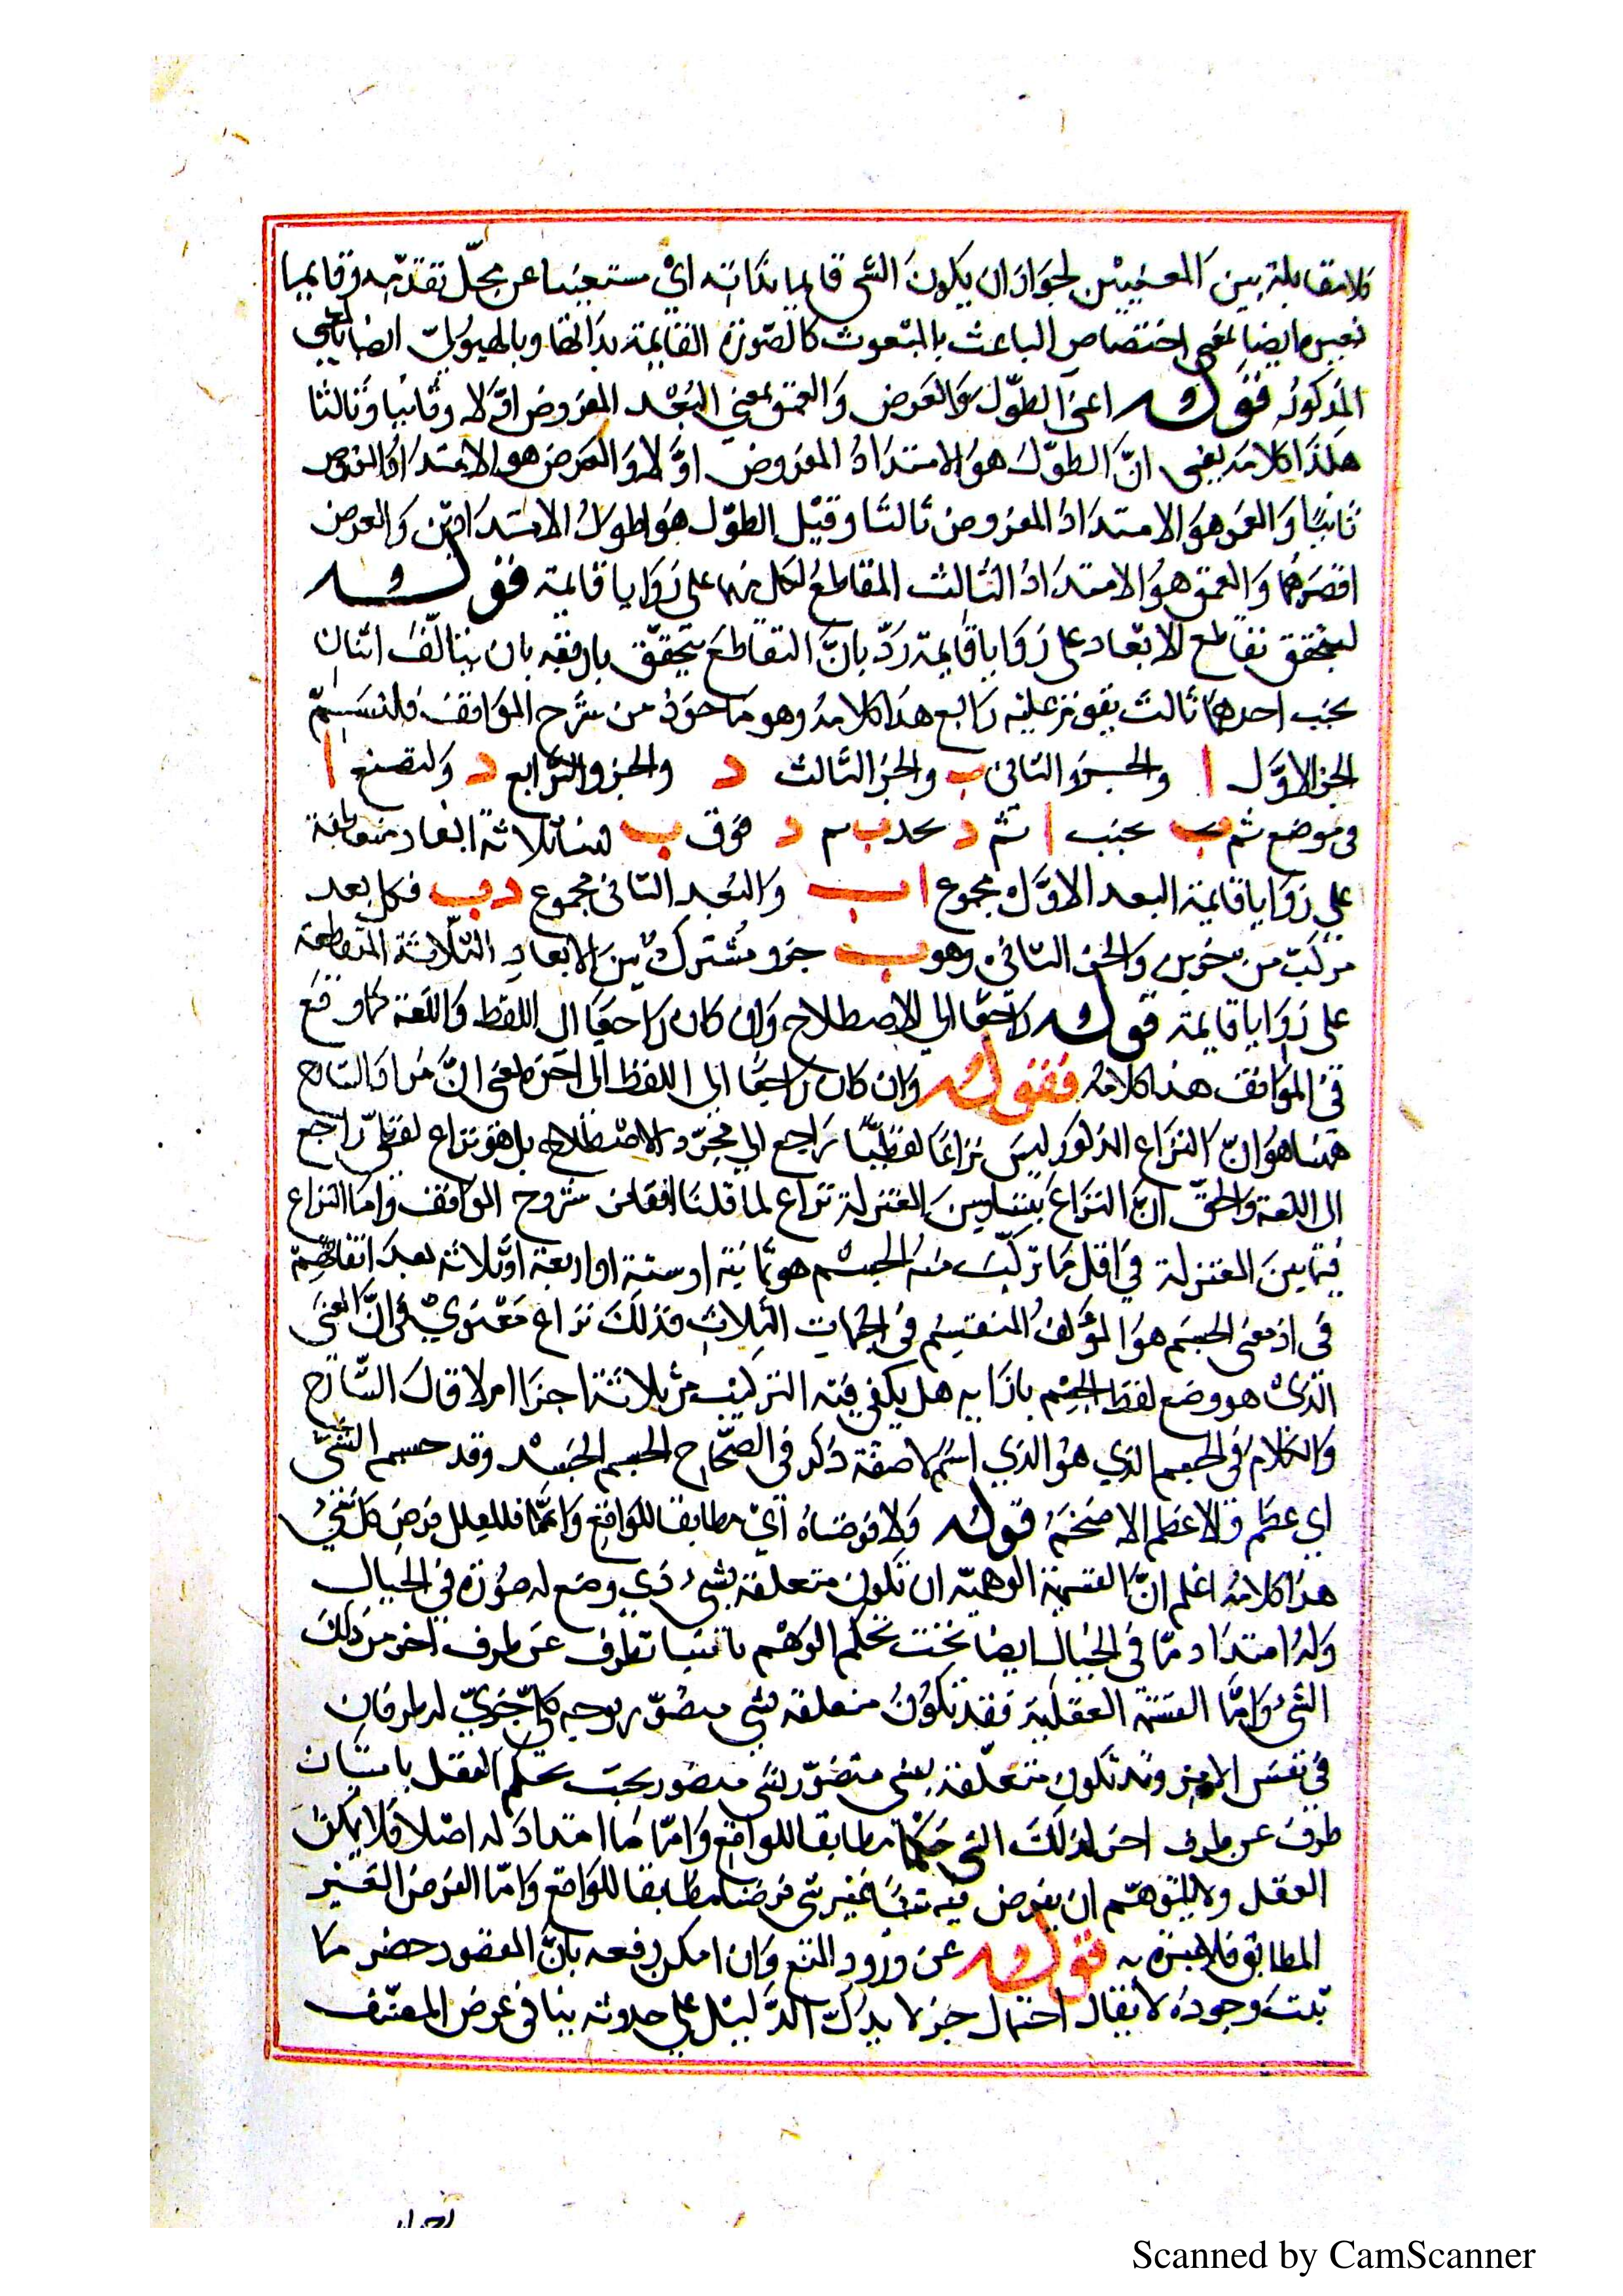 فلا مقابلة بين المعنيين لجواز ان يكون الشي قايما بذاته اي مستغنيا عن محل تقدمه وقايما
بغيره ايضا بمعني اختصاص الباعث بالمنعوت كالصورة القايمة بذاتها وبالهيولي ايضا بالمعني
المذكور فقوله اعني الطول والعرض والعمق بمعني البعد المفروض اولا وثانيا وثالثا
هكذا كلامه يعني ان الطول هو الامتداد المفروض اولا والعرض هو الامتداد المفروض
ثانيا والعمق هو الامتداد المفروض ثالثا وقيل الطول هو اطول الامتدادين والعرض
اقصرهما والعمق هو الامتداد الثالث المقاطع لكل منهما علي زوايا قايمة فقوله
ليتحقق تقاطع الابعاد علي زوايا قايمة رد بان التقاطع يتحقق باربعة بان يتالف اثنان
بجنب احدهما ثالث يقوم عليه رابع هذا كلامه وهو ماخوذ من شرح المواقف فلنسم
الجزء الاول ا والجزو الثاني ب والجزء الثالث د والجزو الرابع د ولتصنع ا
في موضع ثم ب بجنب ا ثم د بحد ب ثم د فوق ب فهنا ثلاثة ابعاد متقاطعة
علي زوايا قايمة البعد الاول مجموع ا ب والبعد الثاني مجموع د ب فكل بعد
مركب من جزوين والجزء الثاني وهو ب جزو مشترك بين الابعاد الثلاثة المتقاطعة
علي زوايا قايمة قوله راجعا الي الاصطلاح وان كان راجعا الي اللفظ واللغة كما وقع
في المواقف هذا كلامه فقوله وان كان راجعا الي اللفظ الي اخره يعني ان مراد الشارح
ههنا هو ان النزاع المذكور ليس نزاعا لفظيا راجع الي مجرد الاصطلاح بل هو نزاع لفظي راجع
الي اللغة والحق ان النزاع بيننا وبين المعتزلة نزاع لما قلنا انفا من شروح المواقف واما النزاع
فيما بين المعتزلة في اقل ما تركب منه الجسم هو ثمانية او ستة او اربعة او ثلاثة بعد اتفاقهم
في ان معني الجسم هو المؤلف المنقسم في الجهات الثلاث فذلك نزاع معنوي في ان المعني
الذي هو وضع لفظ الجسم بازايه هل يكفي فيه التركيب من ثلاثة اجزا ام لا قال الشارح
والكلام في الجسم الذي هو الذي اسم لا صفة ذكر في الصحاح الجسم الجسد وقد جسم الشي
اي عظم فالاعظم الاضخم قوله ولا فرضناه اي مطابقا للواقع وانما فللعقل فرض كل شيء
هذا كلامه اعلم ان القسمة الوهمية ان تكون متعلقة بشيء ذي وضع له صورة في الخيال
وله امتداد ما في الخيال ايضا بحيث يحكم الوهم باثنيا تطرف عن طرف اخر من ذلك
الشيء واما القسمة العقلية فقد تكون متعلقة بشي متصور بوجه كلي جزي له طرفان
في نفس الامر وقد تكون متعلقة بمعني متصور لشي متصور بحيث يحكم العقل باثنيان
طرف عن طرف اخر لذلك الشي حكما مطابقا للواقع واما ما امتداد له اصلا فلا يمكن
العقل ولا للتوهم ان يفرض فيه شيا غير شي فرضا مطابقا للواقع واما الفرض الغير
المطابق فلا عبرة به فقوله عن ورود المنع وان امكن دفعه بان المقصود حصر ما
ثبت وجوده لا يقال احتمال جزء لا يدرك الدليل علي حدوثه ينافي غرض المصنف
Scanned by CamScanner